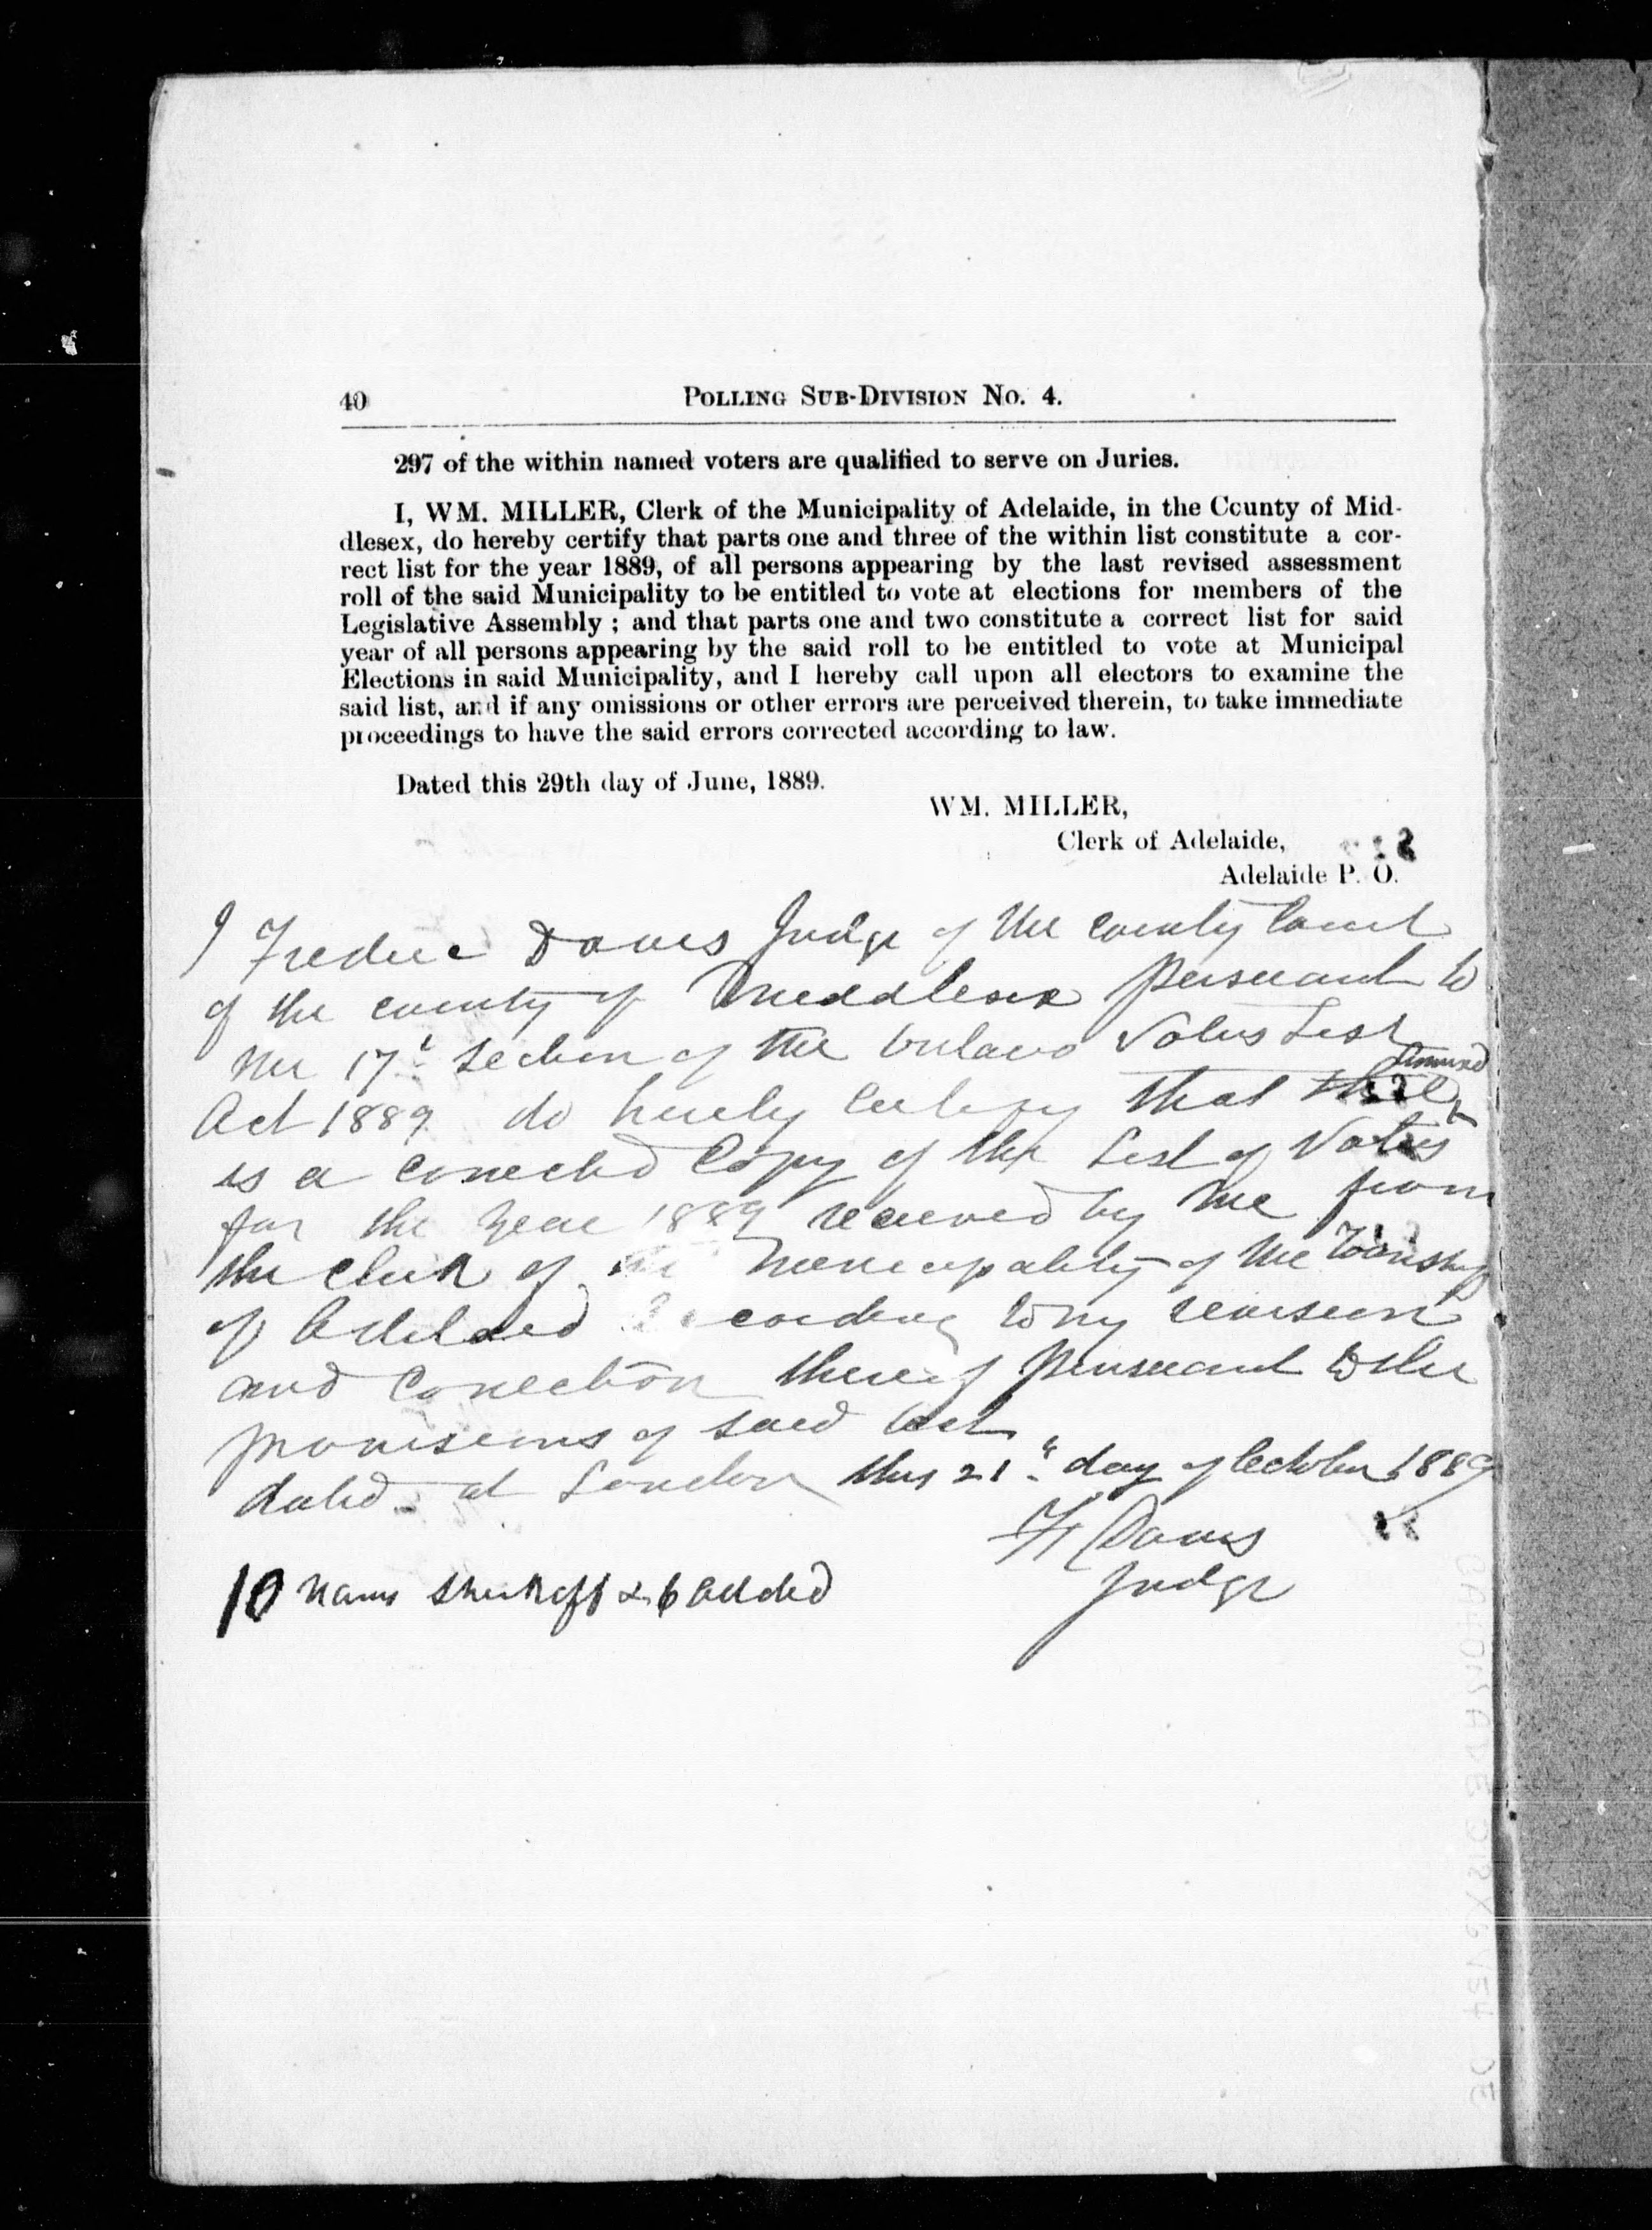 40 POLLING SUB-DIVISION No. 4.
297 of the within named voters are qualified to serve on Juries.
I, WM. MILLER, Clerk of the Municipality of Adelaide, in the County of Mid-
dlesex, do hereby certify that parts one and three of the within list constitute a cor-
rect list for the year 1889, of all persons appearing by the last revised assessment
roll of the said Municipality to be entitled to vote at elections for members of the
Legislative Assembly ; and that parts one and two constitute a correct list for said
year of all persons appearing by the said roll to be entitled to vote at Municipal
Elections in said Municipality, and I hereby call upon all electors to examine the
said list, and if any omissions or other errors are perceived therein, to take immediate
proceedings to have the said errors corrected according to law.
Dated this 29th day of June, 1889.
WM. MILLER,
Clerk of Adelaide,
Adelaide P. O.
I Frederic Davis Judge of the County Court
of the county of Middlesex pursuant to
the 17th Section of the Ontario Voters List
Act 1889 do hereby certify that annexed
is a corrected Copy of the List of Voters
for the year 1889 received by me from
the Clerk of the Municipality of the Township
of Adelaide according to my revision
and Correction thereof pursuant to the
provisions of said Act
dated at London this 21st day of October 1889
Fr Davis
Judge
10 Names struck off & 6 added